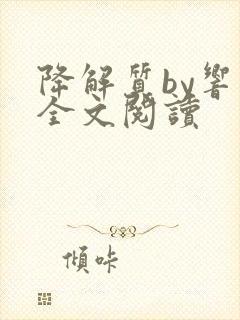 降解質by響
全文閱讀
傾咔